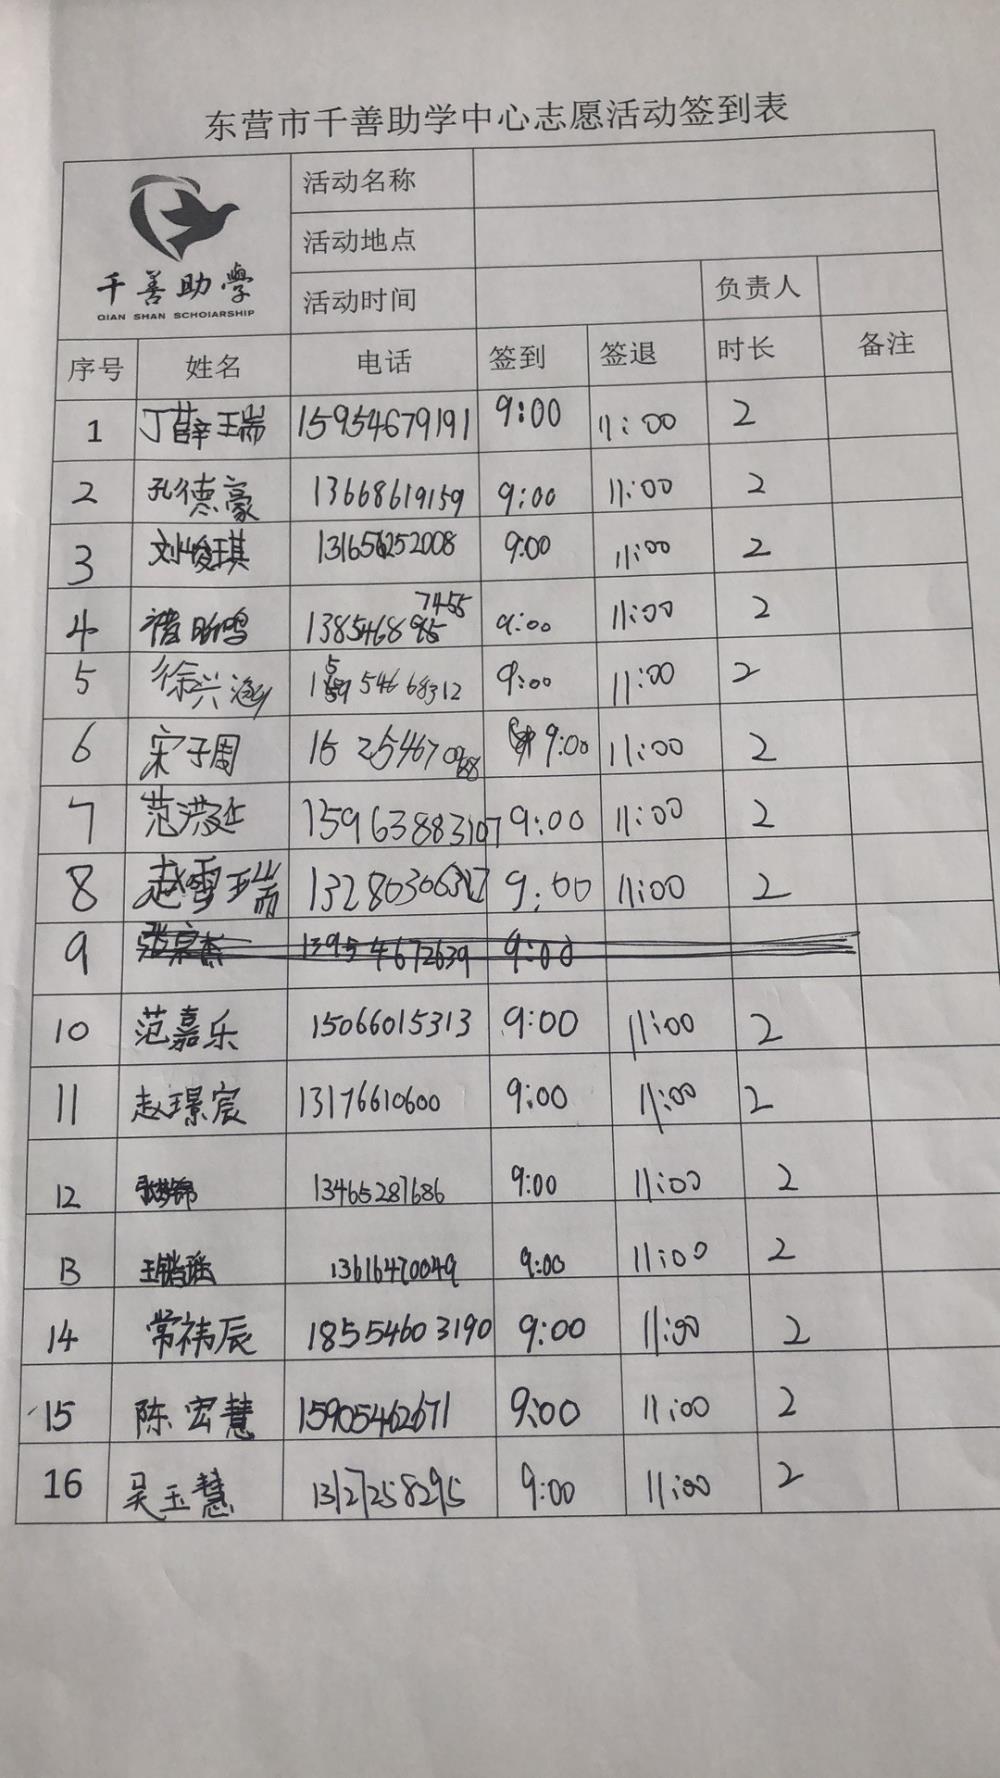 东营市千善助学中心志愿活动签到表
千善助學
QIAN SHAN SCHOIARSHIP
活动名称
活动地点
活动时间 负责人
序号 姓名 电话 签到 签退 时长 备注
1 丁薛瑞 15954679191 9:00 11:00 2
2 孔德豪 13668619159 9:00 11:00 2
3 刘峻琪 9:00 11:00 2
4 9:00 11:00 2
5 徐兴 9:00 11:00 2
6 宋子周 9:00 11:00 2
7 范洪延 15963883107 9:00 11:00 2
8 赵雪瑞 9:00 11:00 2
9 13954672639 9:00
10 范嘉乐 15066015313 9:00 11:00 2
11 赵璟宸 13176610600 9:00 11:00 2
12 13465287686 9:00 11:00 2
13 13616470049 9:00 11:00 2
14 常祎辰 18554603190 9:00 11:00 2
15 陈宏慧 15905462671 9:00 11:00 2
16 吴玉慧 13127258295 9:00 11:00 2